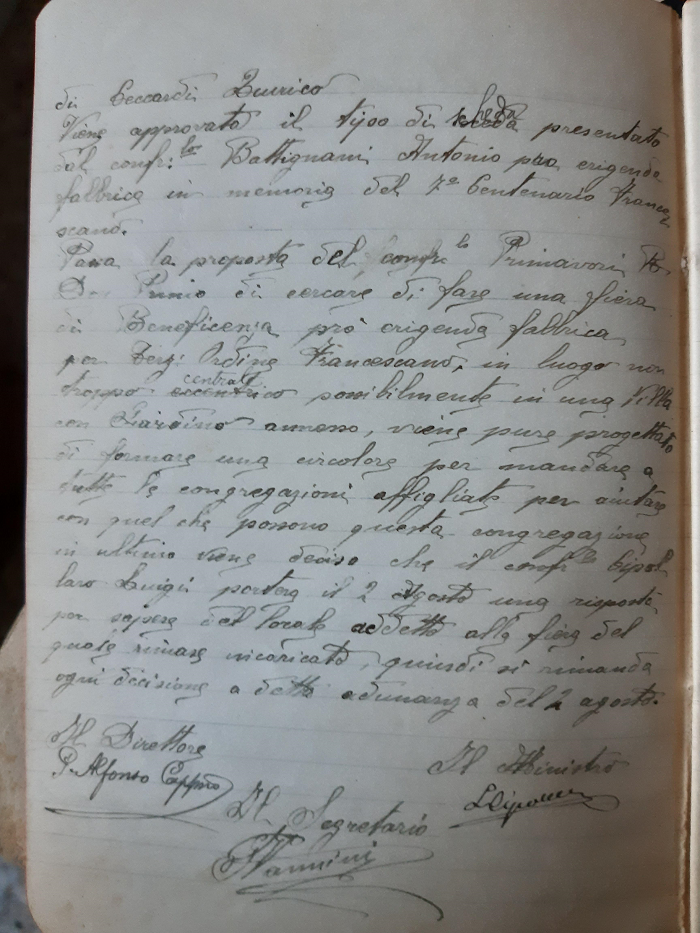 di Ceccardi Zurico
Viene approvato il tipo di scheda presentato
dal confr:llo Battignani Antonio pro erigenda
fabbrica in memoria del 7º Centenario France
scano.
Passa la proposta del confrllo Primavori
di cercare di fare una fiera
di Beneficenza pro' erigenda fabbrica
per Terz: Ordine Francescano, in luogo non
troppo centrale possibilmente in una Villa
con Giardino annesso, viene pure progettato
di formare una circolare per mandare a
tutte le congregazioni affigliate per aiutare
con quel che possono questa congregazione
in ultimo viene deciso che il confrllo Cipol
laro Luigi porterà il 2 Agosto una risposta
per sapere del locale addetto alla fiera del
quale rimase incaricato, quindi si rimanda
ogni decisione a detta adunanza del 2 agosto.
Il Direttore
P. Alfonso
Il Ministro
Il Segretario
Vannini